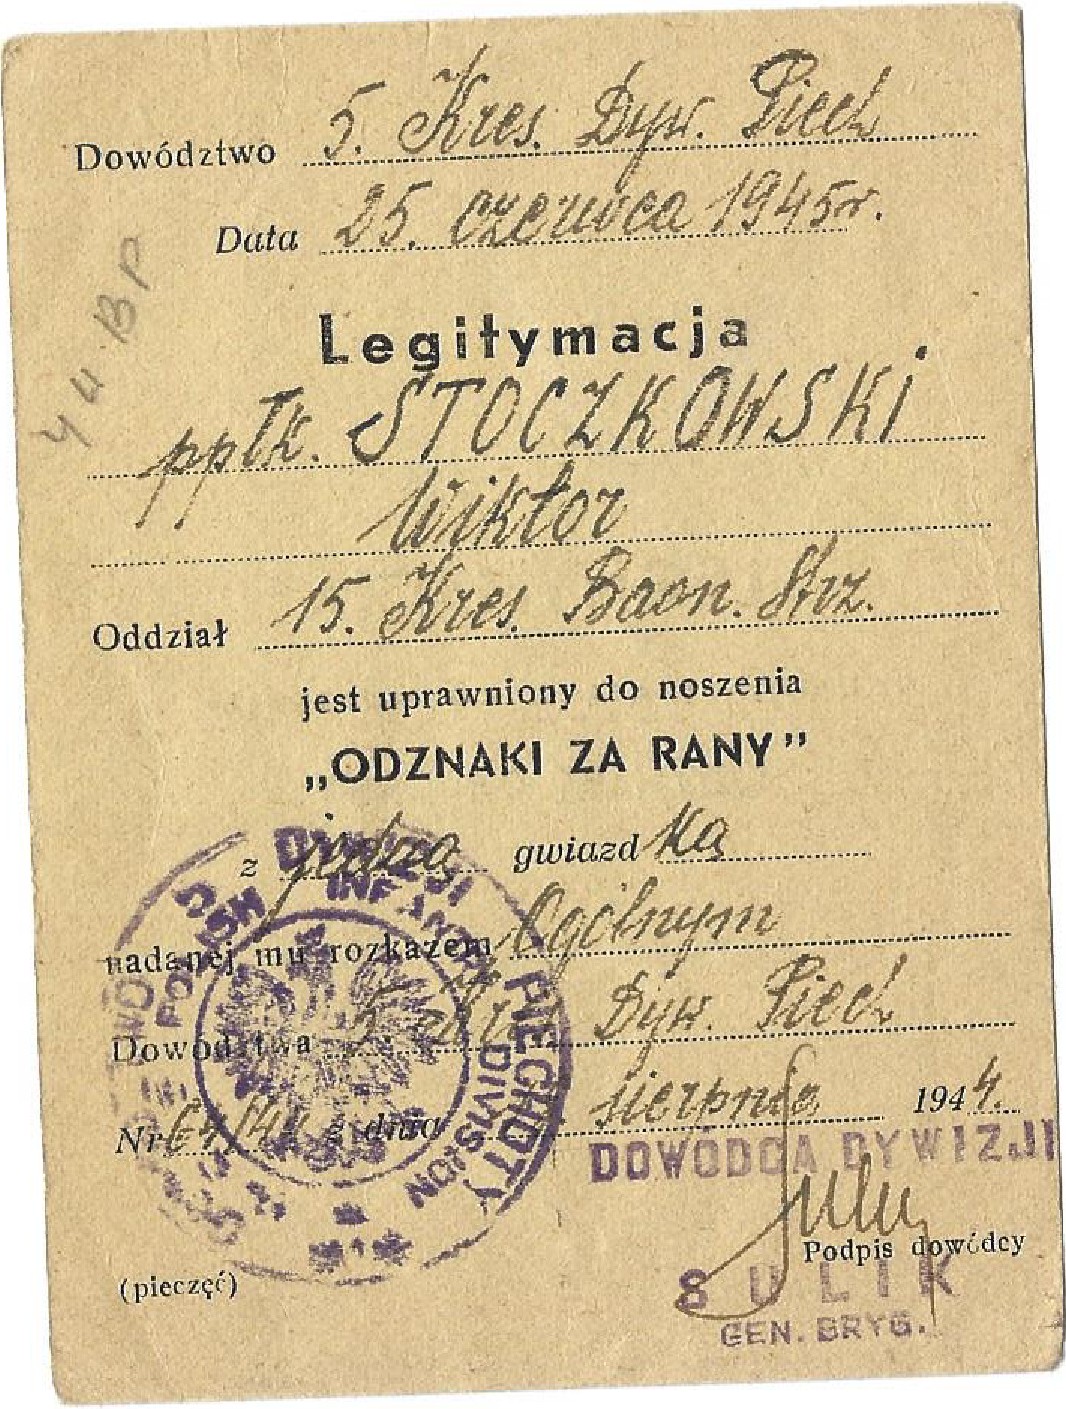 Dowództwo 5. Kres. Dyw. Piech
Data 25. czerwca 1945 r.
4 u. BP
Legitymacja
ppłk. STOCZKOWSKI
Wiktor
Oddział 15. Kres. Baon. Strz.
jest uprawniony do noszenia
„ODZNAKI ZA RANY”
z jedną gwiazdką
nadanej mu rozkazem Ogólnym
Dowództwa 5 Dyw. Piech
Nr 64/44 z dnia sierpnia 1944.
DOWÓDCA DYWIZJI
Podpis dowódcy
(pieczęć)
SULIK
GEN. BRYG.
DYWIZJI PIECHOTY
POLISH INFANTRY DIVISION